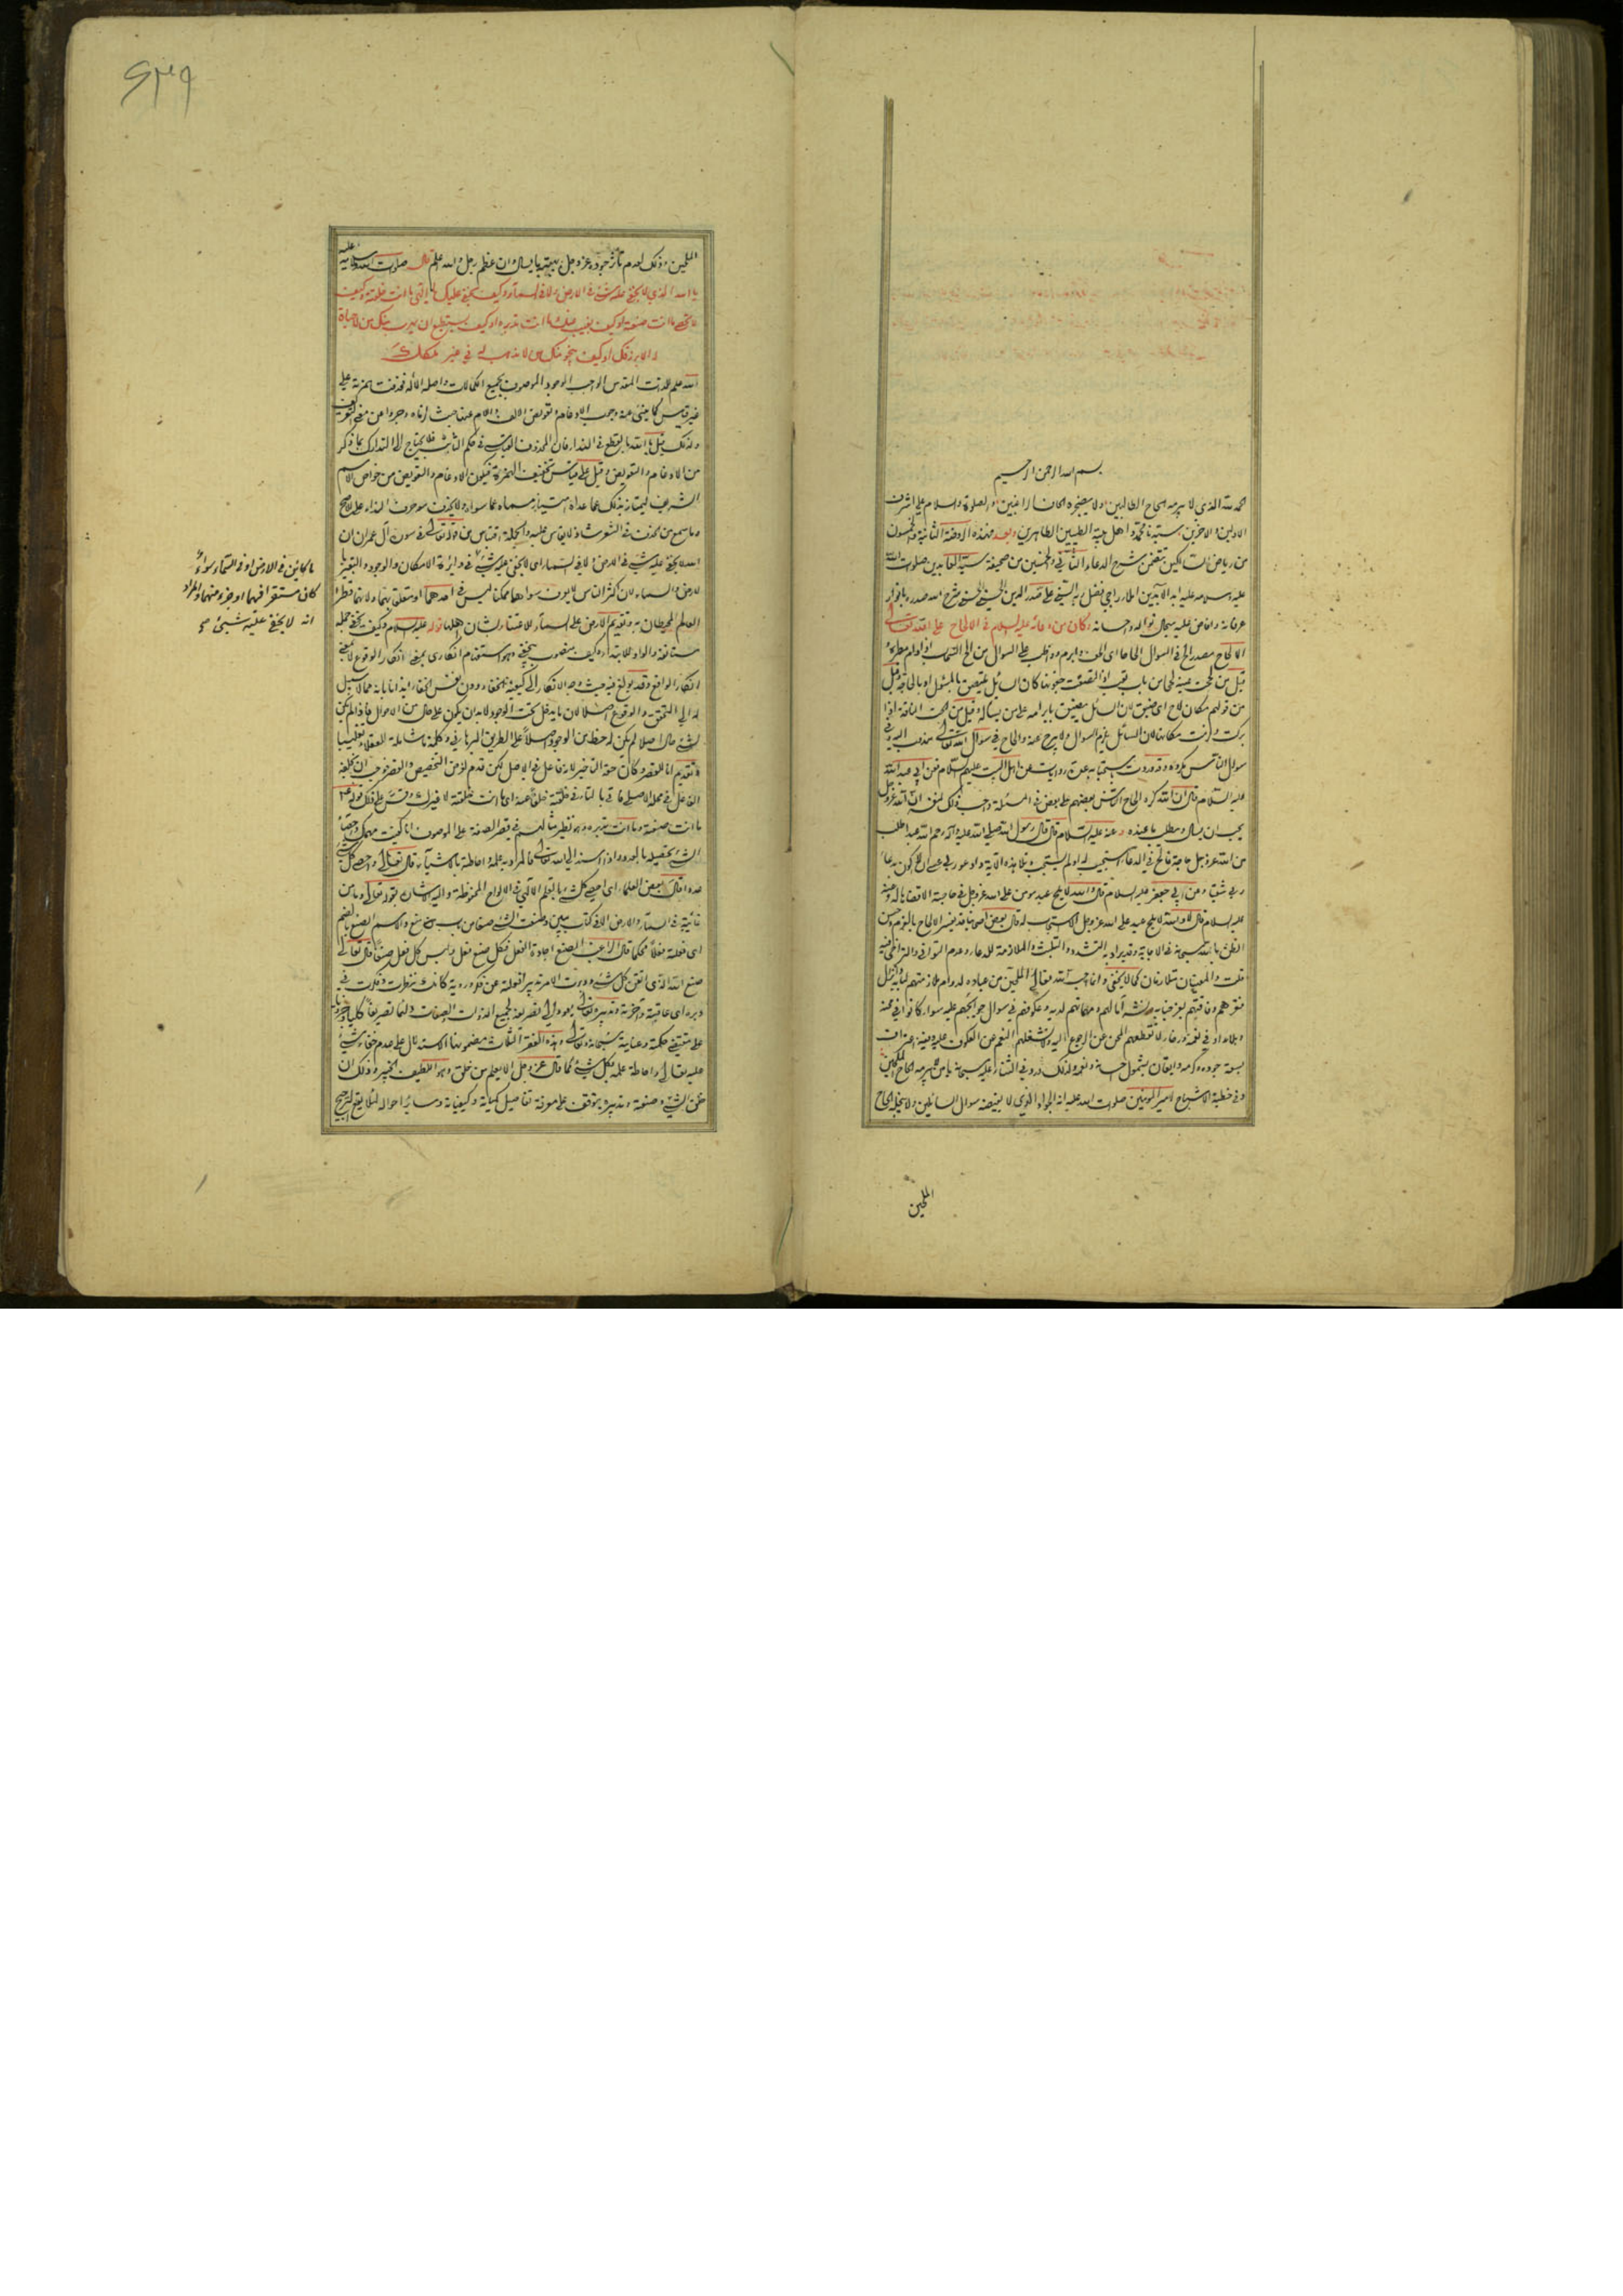 بسم الله الرحمن الرحيم
الحمد لله الذي لا يبرمه الحاح الطالبين ولا يعجزه الراغبين والصلوة والسلام على اشرف
الاولين والاخرين سيدنا محمد واهل بيته الطيبين الطاهرين وبعد فهذه الروضة الثانية والخمسون
من رياض السالكين يتضمن شرح الدعاء الثاني والخمسين من صحيفة سيد العابدين صلوات الله
عليه وسلامه عليه ابد الابدين املاء راجي فضل ربه السني علي صدر الدين الحسيني الحسني شرح الله صدره بانوار
عرفانه وافاض عليه سجال نواله واحسانه وكان من دعائه عليه السلام في الالحاح على الله تعالى
الالحاح مصدر الح في السؤال الحاحا اى الحف وابرم وواظب على السؤال من الح السحاب اذا دام مطره
قيل من لححت عينه لححا من باب تعب اذا التصقت جفونها كان السائل يلتصق بالمسئول او بالحاجة وقيل
من قولهم مكان لاح اى ضيق لان السائل يضيق بابرامه على من يسأله وقيل من الحت الناقة اذا
بركت ولزمت مكانها لان السائل يلزم السؤال ولا يبرح عنه والحاح في سؤال الله تعالى مندوب اليه وفي
سؤال الناس مكروه وقد وردت باستحبابه عدة روايات عن اهل البيت عليهم السلام فعن ابي عبد الله
عليه السلام قال ان الله كره الحاح الناس بعضهم على بعض في المسئلة واحب ذلك لنفسه ان الله عز وجل
يحب ان يسأل ويطلب ما عنده وعنه عليه السلام قال قال رسول الله صلى الله عليه واله رحم الله عبدا طلب
من الله عز وجل حاجة فالح في الدعاء استجيب له او لم يستجب وتلا هذه الاية وادعو ربي عسى ان لا اكون بدعاء
ربي شقيا وعن ابي جعفر عليه السلام قال والله لا يلح عبد مومن على الله عز وجل في حاجة الا قضاها له وعنه
عليه السلام قال لا والله لا يلح عبد على الله عز وجل الا استجاب له قال بعض اصحابنا قد يفسر الالحاح بلزوم حسن
الظن بالله سبحانه في الاجابة وقد يراد به التشدد والتلبث والملازمة للدعاء وعدم التواني والتراخي فيه
قلت والمعنيان متلازمان كما لا يخفى وانما احب الله تعالى الملحين من عباده لدوام ملازمتهم لبابه وانزال
فقرهم وفاقتهم بعز جنابه آمالهم لديه وعكوفهم في سؤال حوائجهم عليه سواء كانوا في محنة
وبلاء او في نعمة ورخاء لا تقطعهم المحن عن الرجوع اليه ولا تشغلهم النعم عن العكوف عليه
بسعة جوده وكرمه وايقان بشمول احسانه ونعمه ولذلك ورد في الثناء عليه سبحانه يا من لا يبرمه الحاح الملحين
وفي خطبة الاشباح لامير المؤمنين صلوات الله عليه انه الجواد الذي لا يغيضه سؤال السائلين ولا يبخله الحاح
الملحين
الملحين وذلك لعدم تأثر جوده عز وجل بهبته ما يسأل وان عظم وجل والله اعلم قال صلوات الله وسلامه عليه
يا الله الذي لا يخفى عليه شيء في الارض ولا في السماء وكيف يخفى عليك يا الهي ما انت خلقته وكيف
لا تحصي ما انت صنعته او كيف يغيب عنك ما انت تدبره او كيف يستطيع ان يهرب منك من لا حياة
له الا برزقك او كيف ينجو منك من لا مذهب له في غير ملكك
الله علم للذات المقدس الواجب الوجود الموصوف بجميع الكمالات واصله الاله فحذفت همزته على
غير قياس كما ينبئ عنه وجوب الادغام وتعويض الالف واللام عنها حيث لزماه وجردا عن معنى التعريف
ولذلك قيل يا الله بالقطع في النداء فان المحذوف القياسي في حكم الثابت فلا يحتاج الى التدارك بما ذكر
من الادغام والتعويض وقيل على قياس تخفيف الهمزة فيكون الادغام والتعويض من خواص الاسم
الشريف ليمتاز بذلك عما عداه امتياز مسماه عما سواه ولا يحذف منه حرف النداء على الاصح
وما سمع من حذفه في الشعر شاذ لا يقاس عليه والجملة اقتباس من قوله تعالى في سورة آل عمران ان
الله لا يخفى عليه شيء في الارض ولا في السماء اى لا يخفى عليه شيء ما في دائرة الامكان والوجود والتعبير با
لارض والسماء لان اكثر الناس لا يرون سواهما ممكنا ليس في احدهما او متعلق بهما ولانهما قطرا
العالم المحيطان به وتقديم الارض على السماء للاعتناء بشان اهلها قوله عليه السلام وكيف يخفى جملة
مستانفة والواو للابتداء وكيف منصوب بيخفى وهو استفهام انكارى بمعنى انكار الوقوع لا بمعنى
انكار الواقع وقد بولغ فيه حيث وجه الانكار الى كيفية الخفاء دون نفس الخفاء ايذانا بانه مما لا سبيل
له الى التحقق والوقوع اصلا لان ما يدخل تحت الوجود لا بد ان يكون على حال من الاحوال فاذا لم يكن
لشيء حال اصلا لم يكن له حظ من الوجود اصلا على الطريق البرهاني وكلمة ما شاملة للعقلاء تغليبا
وتقديم انت للقصر وكان حقه التاخير لانه فاعل في الاصل لكن قدم لغرض التخصيص والقصر
ما انت صنعته وما انت تدبره وهو نظير في قصر الصفة على الموصوف انا كفيت مهمك
الشيء تحصيله بالعدد واذا اسند الى الله تعالى فالمراد به علمه واحاطته بالاشياء قال تعالى واحصى كل شيء
عددا قال بعض العلماء اى احصى كل شيء بالقلم الالهي في الالواح المحفوظة واليه الاشارة بقوله تعالى وما من
غائبة في السماء والارض الا في كتاب مبين وصنعت الشيء صنعا من باب منع والاسم الصنع بالضم
اى فعلته فعلا محكما قال الراغب الصنع اجادة الفعل فكل صنع فعل وليس كل فعل صنعا قال تعالى
صنع الله الذي اتقن كل شيء ودبرت الامر تدبيرا فعلته عن فكر وروية كانك نظرت وفكرت في
دبره اى عاقبته وآخرته وتدبيره تعالى يعود الى تصريفه لجميع الذوات والصفات دائما تصريفا كليا وجزئيا
على مقتضى حكمته وعنايته سبحانه وتعالى وهذه الفقرات الثلاث مضمونها الاستدلال على عدم خفاء شيء
عليه تعالى واحاطة علمه بكل شيء كما قال عز وجل الا يعلم من خلق وهو اللطيف الخبير وذلك ان
خلق الشيء وصنعه وتدبيره يتوقف على معرفة تفاصيل كمياته وكيفياته وسائر احواله لئلا يقع الترجيح
ما كائن في الارض او في السماء سواء
كان مستقرا فيهما او جزء منهما والمراد
انه لا يخفى عليه شيئ صح